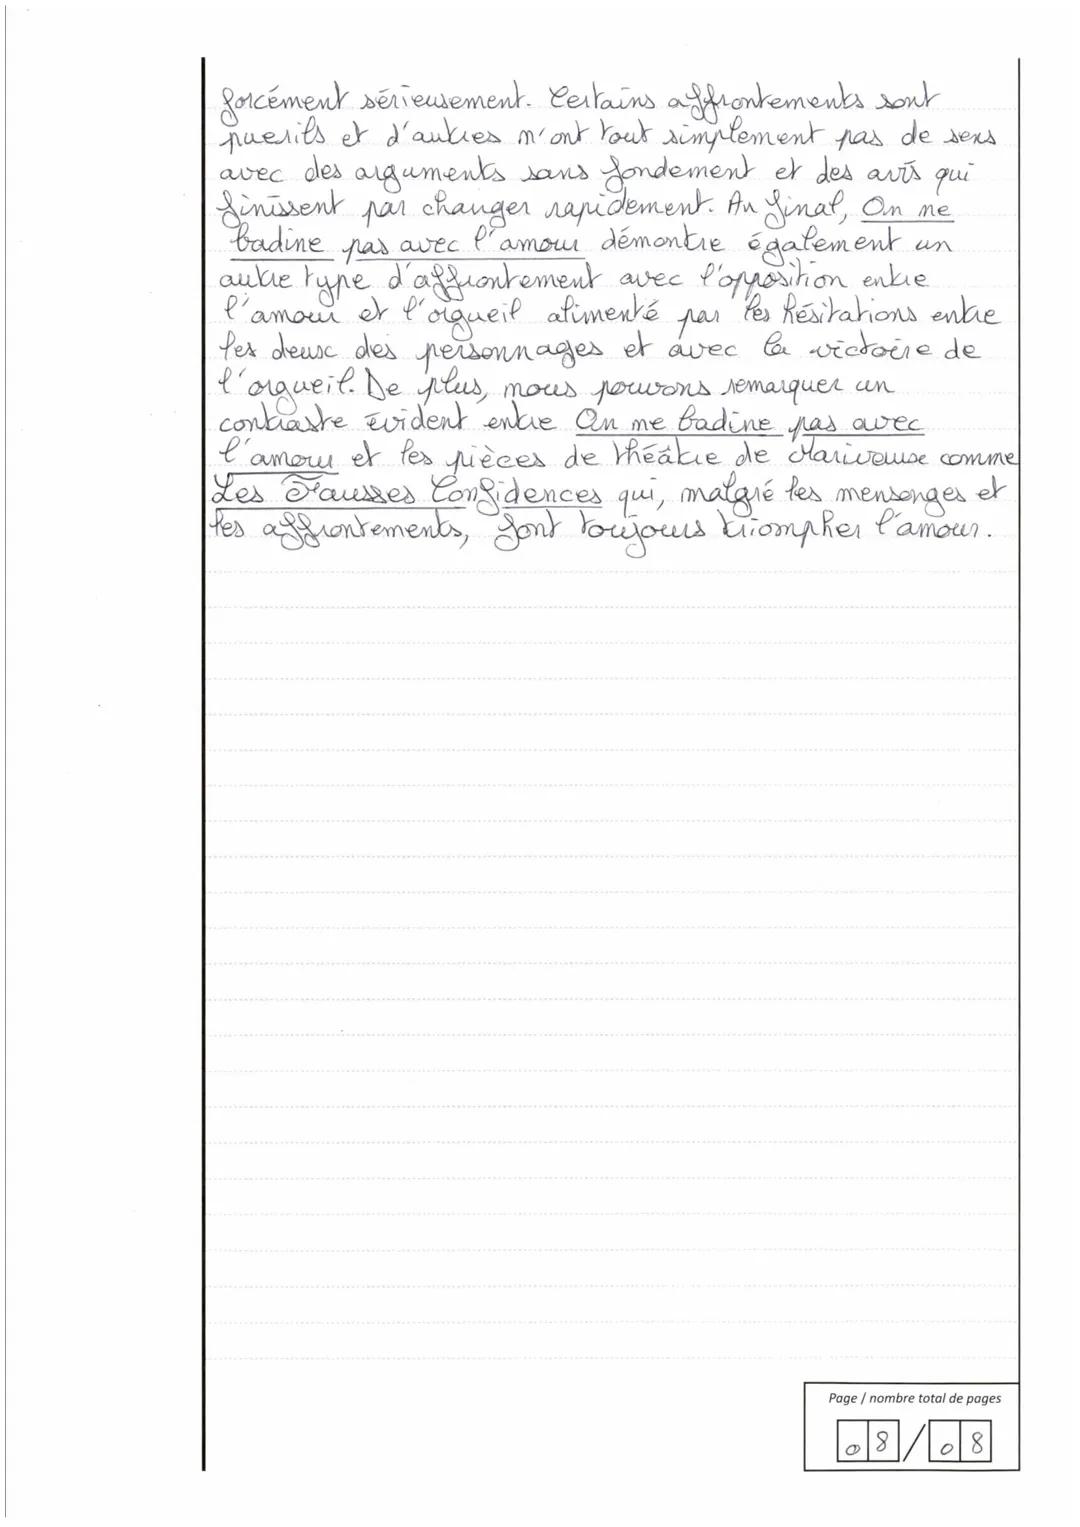 forcément sérieusement. Certains affrontements sont
puerils et d'autres n'ont tout simplement pas de sens
avec des arguments sans fondement et des avis qui
finissent par changer rapidement. Au final, On ne
badine pas avec l'amour démontre également un
autre type d'affrontement avec l'opposition entre
l'amour et l'orgueil alimenté par les hésitations entre
les deux des personnages et avec la victoire de
l'orgueil. De plus, nous pouvons remarquer un
contraste évident entre On ne badine pas avec
l'amour et les pièces de théâtre de Marivause comme
Les Fausses Confidences qui, malgré les mensonges et
les affrontements, font toujours triompher l'amour.
Page / nombre total de pages
08/08